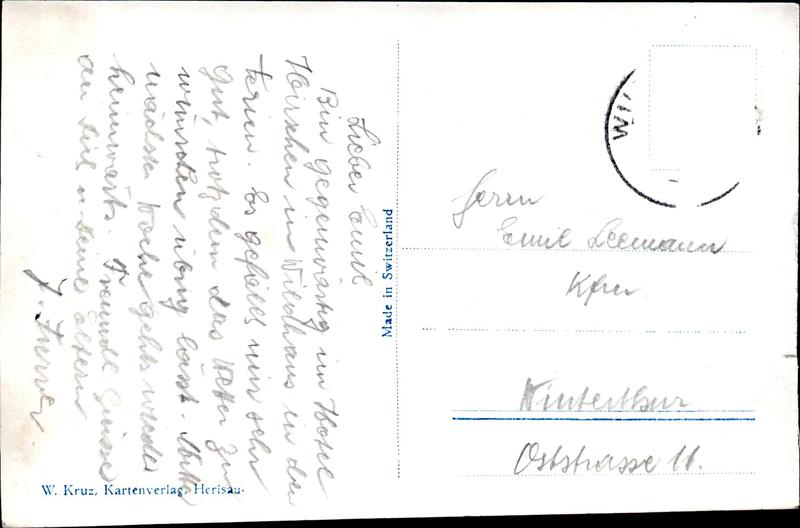 Lieber Emil
Bin gegenwärtig im Hotel
Hirschen in Wildhaus in den
Ferien. Es gefällt mir sehr
gut, trotzdem das Wetter zu
wünschen übrig lässt. Mitte
nächster Woche gehts wieder
heimwärts. Freundl. Grüsse
an dich u. deine Eltern
J.
Made in Switzerland
W. Kruz, Kartenverlag, Herisau.
WI
Herrn
Emil Leemann
Kfm.
Winterthur
Oststrasse 11.